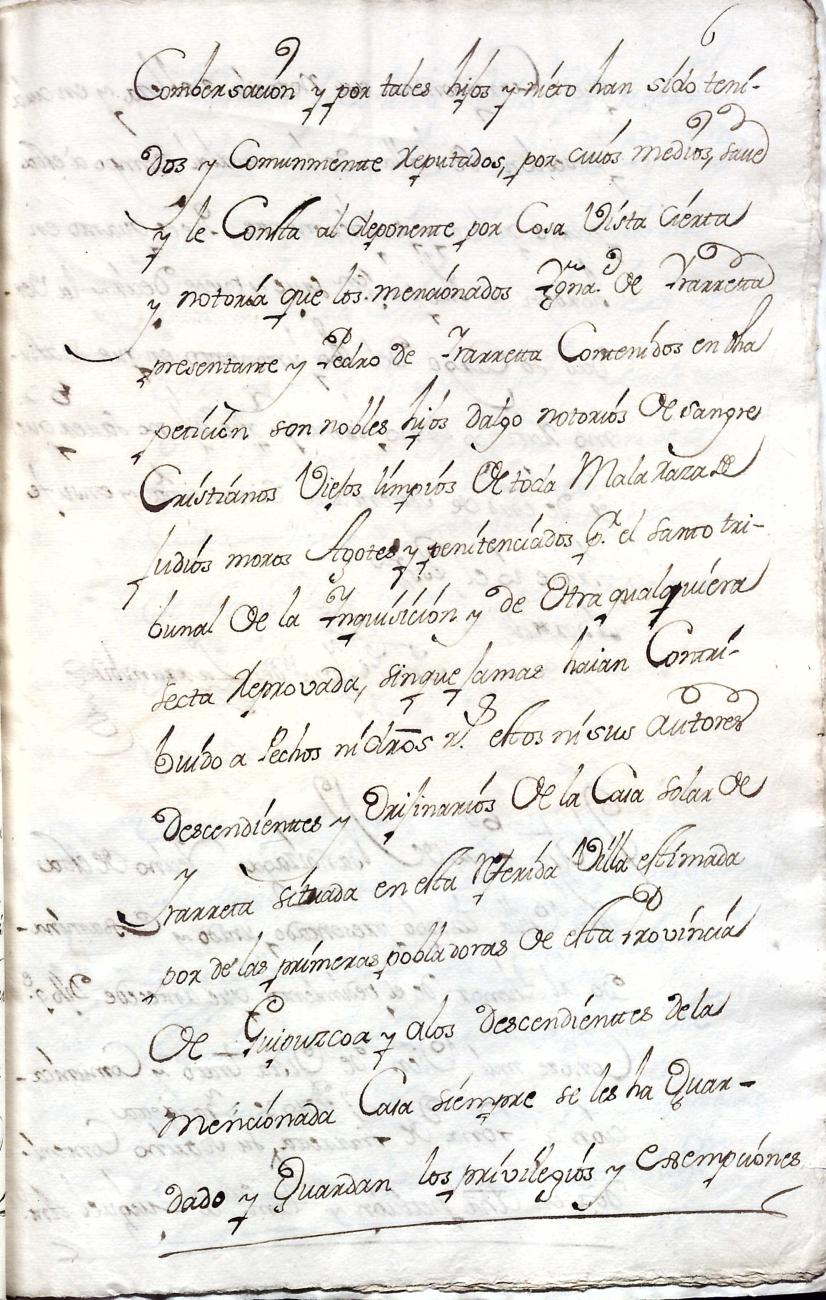 6
Combersación y por tales hijos y nieto han sido teni-
dos y Comunmente Reputados, por cuios medios, save
y le Consta al deponente por Cosa Vista Cierta
y notoria que los mencionados Ygn.ª de Yarretta
presentante y Pedro de Yarretta Contenidos en dha
petición son nobles hijos dalgo notorios de sangre
Cristianos Viejos limpios de toda Mala Raza de
judios moros Agotes y penitenciados p.r el santo tri-
bunal de la Inquisición y de otra qualquiera
secta Reprovada, sinque jamas haian Contri-
buido a Pechos ni dros r.s estos ni sus autores
descendienttes y Orijinarios de la Casa solar de
Yarreta situada en esta Referida Villa estimada
por de las primeras pobladoras de esta Provincia
de Guipuzcoa y alos descendienttes dela
mencionada Casa siempre se les ha Guar-
dado y Guardan los privilegios y exsempciones